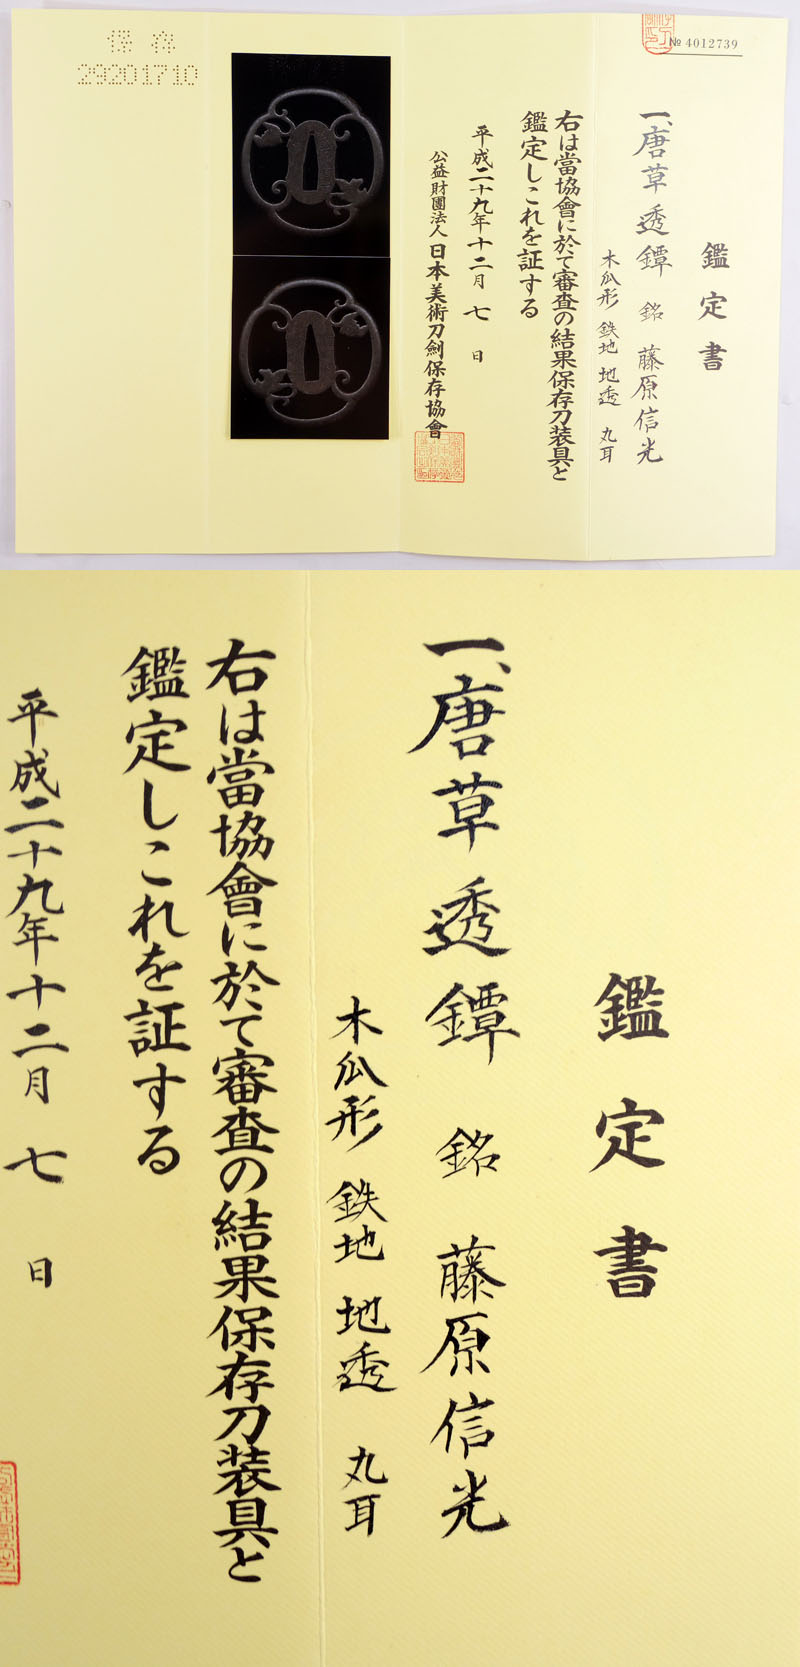 № 4012739
鑑定書
一、唐草透鐔 銘 藤原信光
木瓜形 鉄地 地透 丸耳
右は當協會に於て審査の結果保存刀装具と
鑑定しこれを証する
平成二十九年十二月 七 日
公益財團法人 日本美術刀劍保存協會
保存
29201710
鑑定書
一、唐草透鐔 銘 藤原信光
木瓜形 鉄地 地透 丸耳
右は當協會に於て審査の結果保存刀装具と
鑑定しこれを証する
平成二十九年十二月 七 日